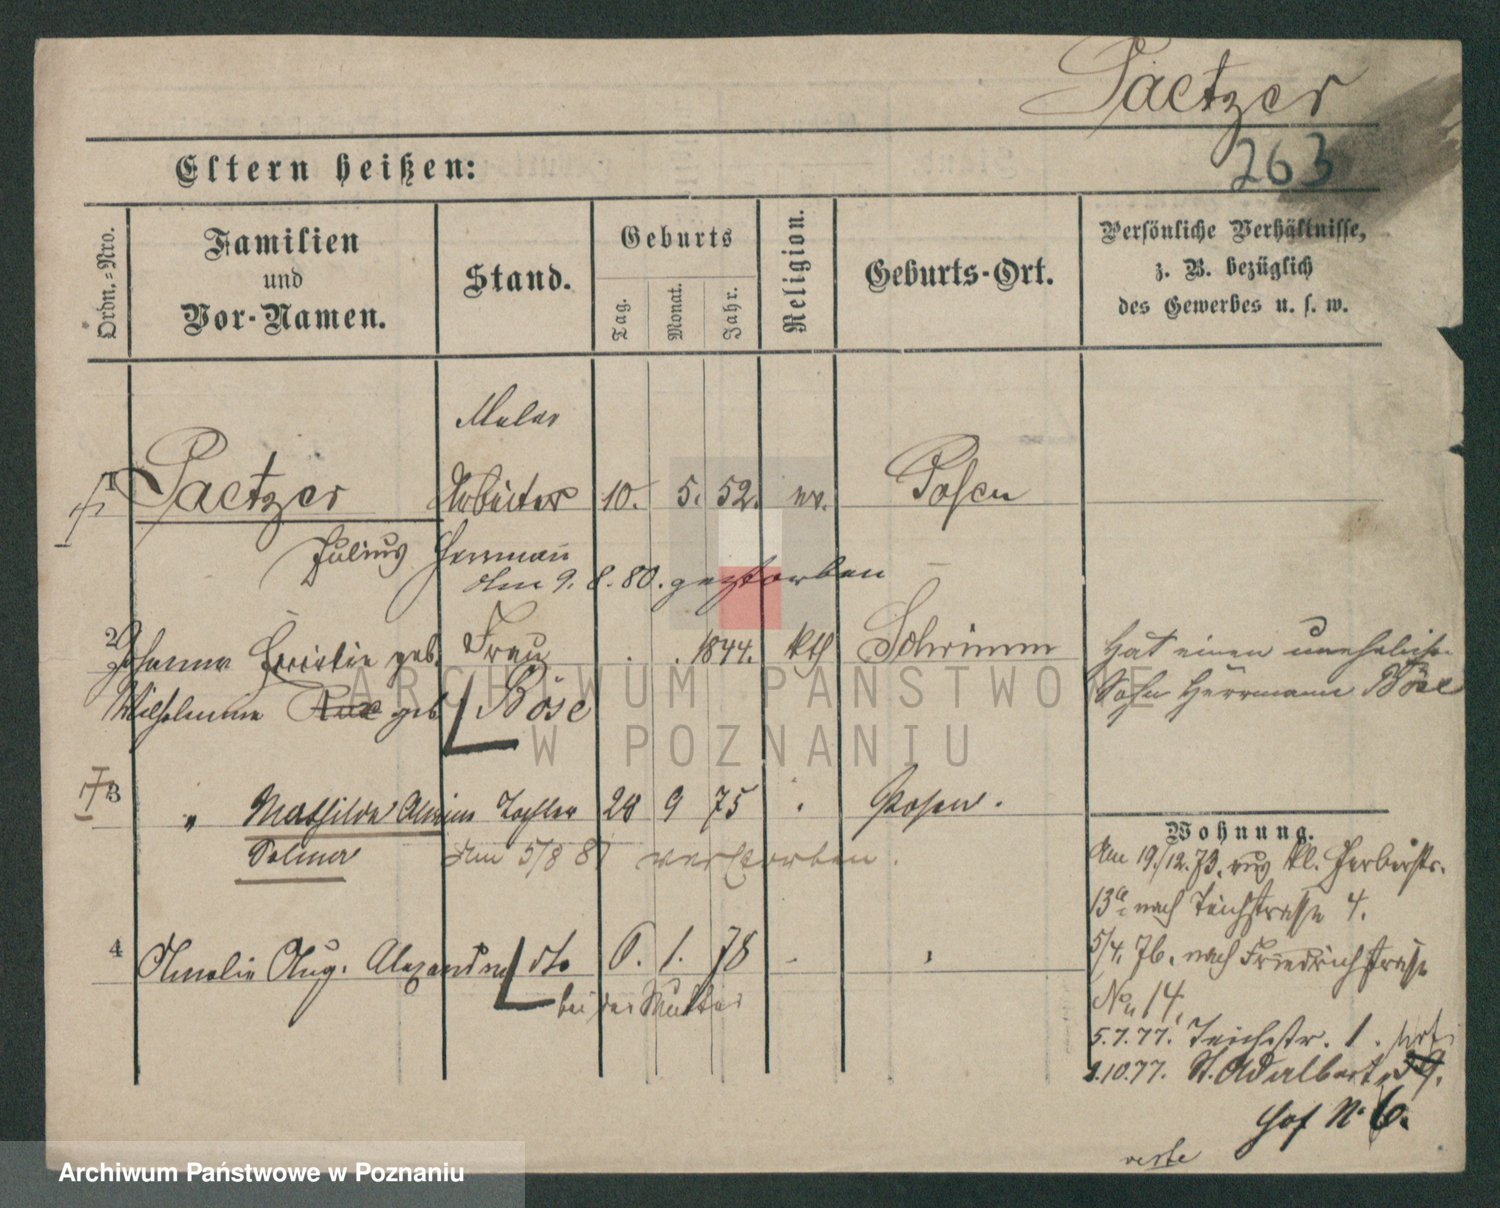 Paetzer
263
Eltern heißen:
Ordn.-Nro.
Familien
und
Vor-Namen.
Stand.
Geburts
Tag.
Monat.
Jahr.
Religion.
Geburts-Ort.
Persönliche Verhältnisse,
z. B. bezüglich
des Gewerbes u. s. w.
Maler
1 Paetzer Arbeiter 10. 5. 52. ev. Posen
Julius Herrman
den 9. 8. 80. gestorben
2 Johanna geb. Frau 1844. kth Schrimm
Hat einen unehelich.
Wilhelmine geb Böse
Sohn Herrmann Böse
3 " Mathilde Tochter 28 9 75 Posen.
den 5/8 81 verstorben.
4 Amalie Aug. Alexandrine dto 6. 1. 78
bei der Mutter
Wohnung.
Am 19./12.73. aus kl. Gerberstr.
13a nach Teichstrasse 4.
5/4. 76. nach Friedrichstrasse
No 14.
5.7.77. Teichstr. 1.
1.10.77. St. Adalbert 39.
Hof N. 6.
ARCHIWUM PAŃSTWOWE
W POZNANIU
Archiwum Państwowe w Poznaniu